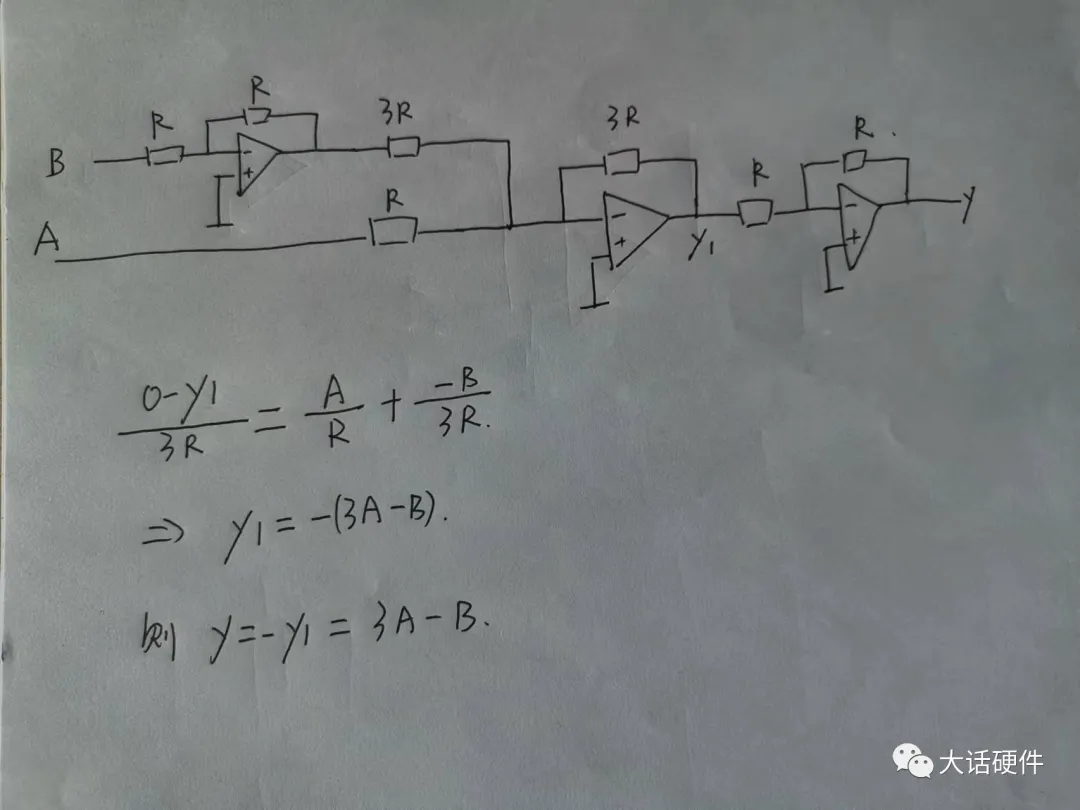 R
R
3R
3R
R
B
-
+
R
R
A
-
+
y1
-
+
y
0-y1/3R = A/R + -B/3R.
⇒ y1 = -(3A-B).
则 y=-y1 = 3A-B.
大话硬件